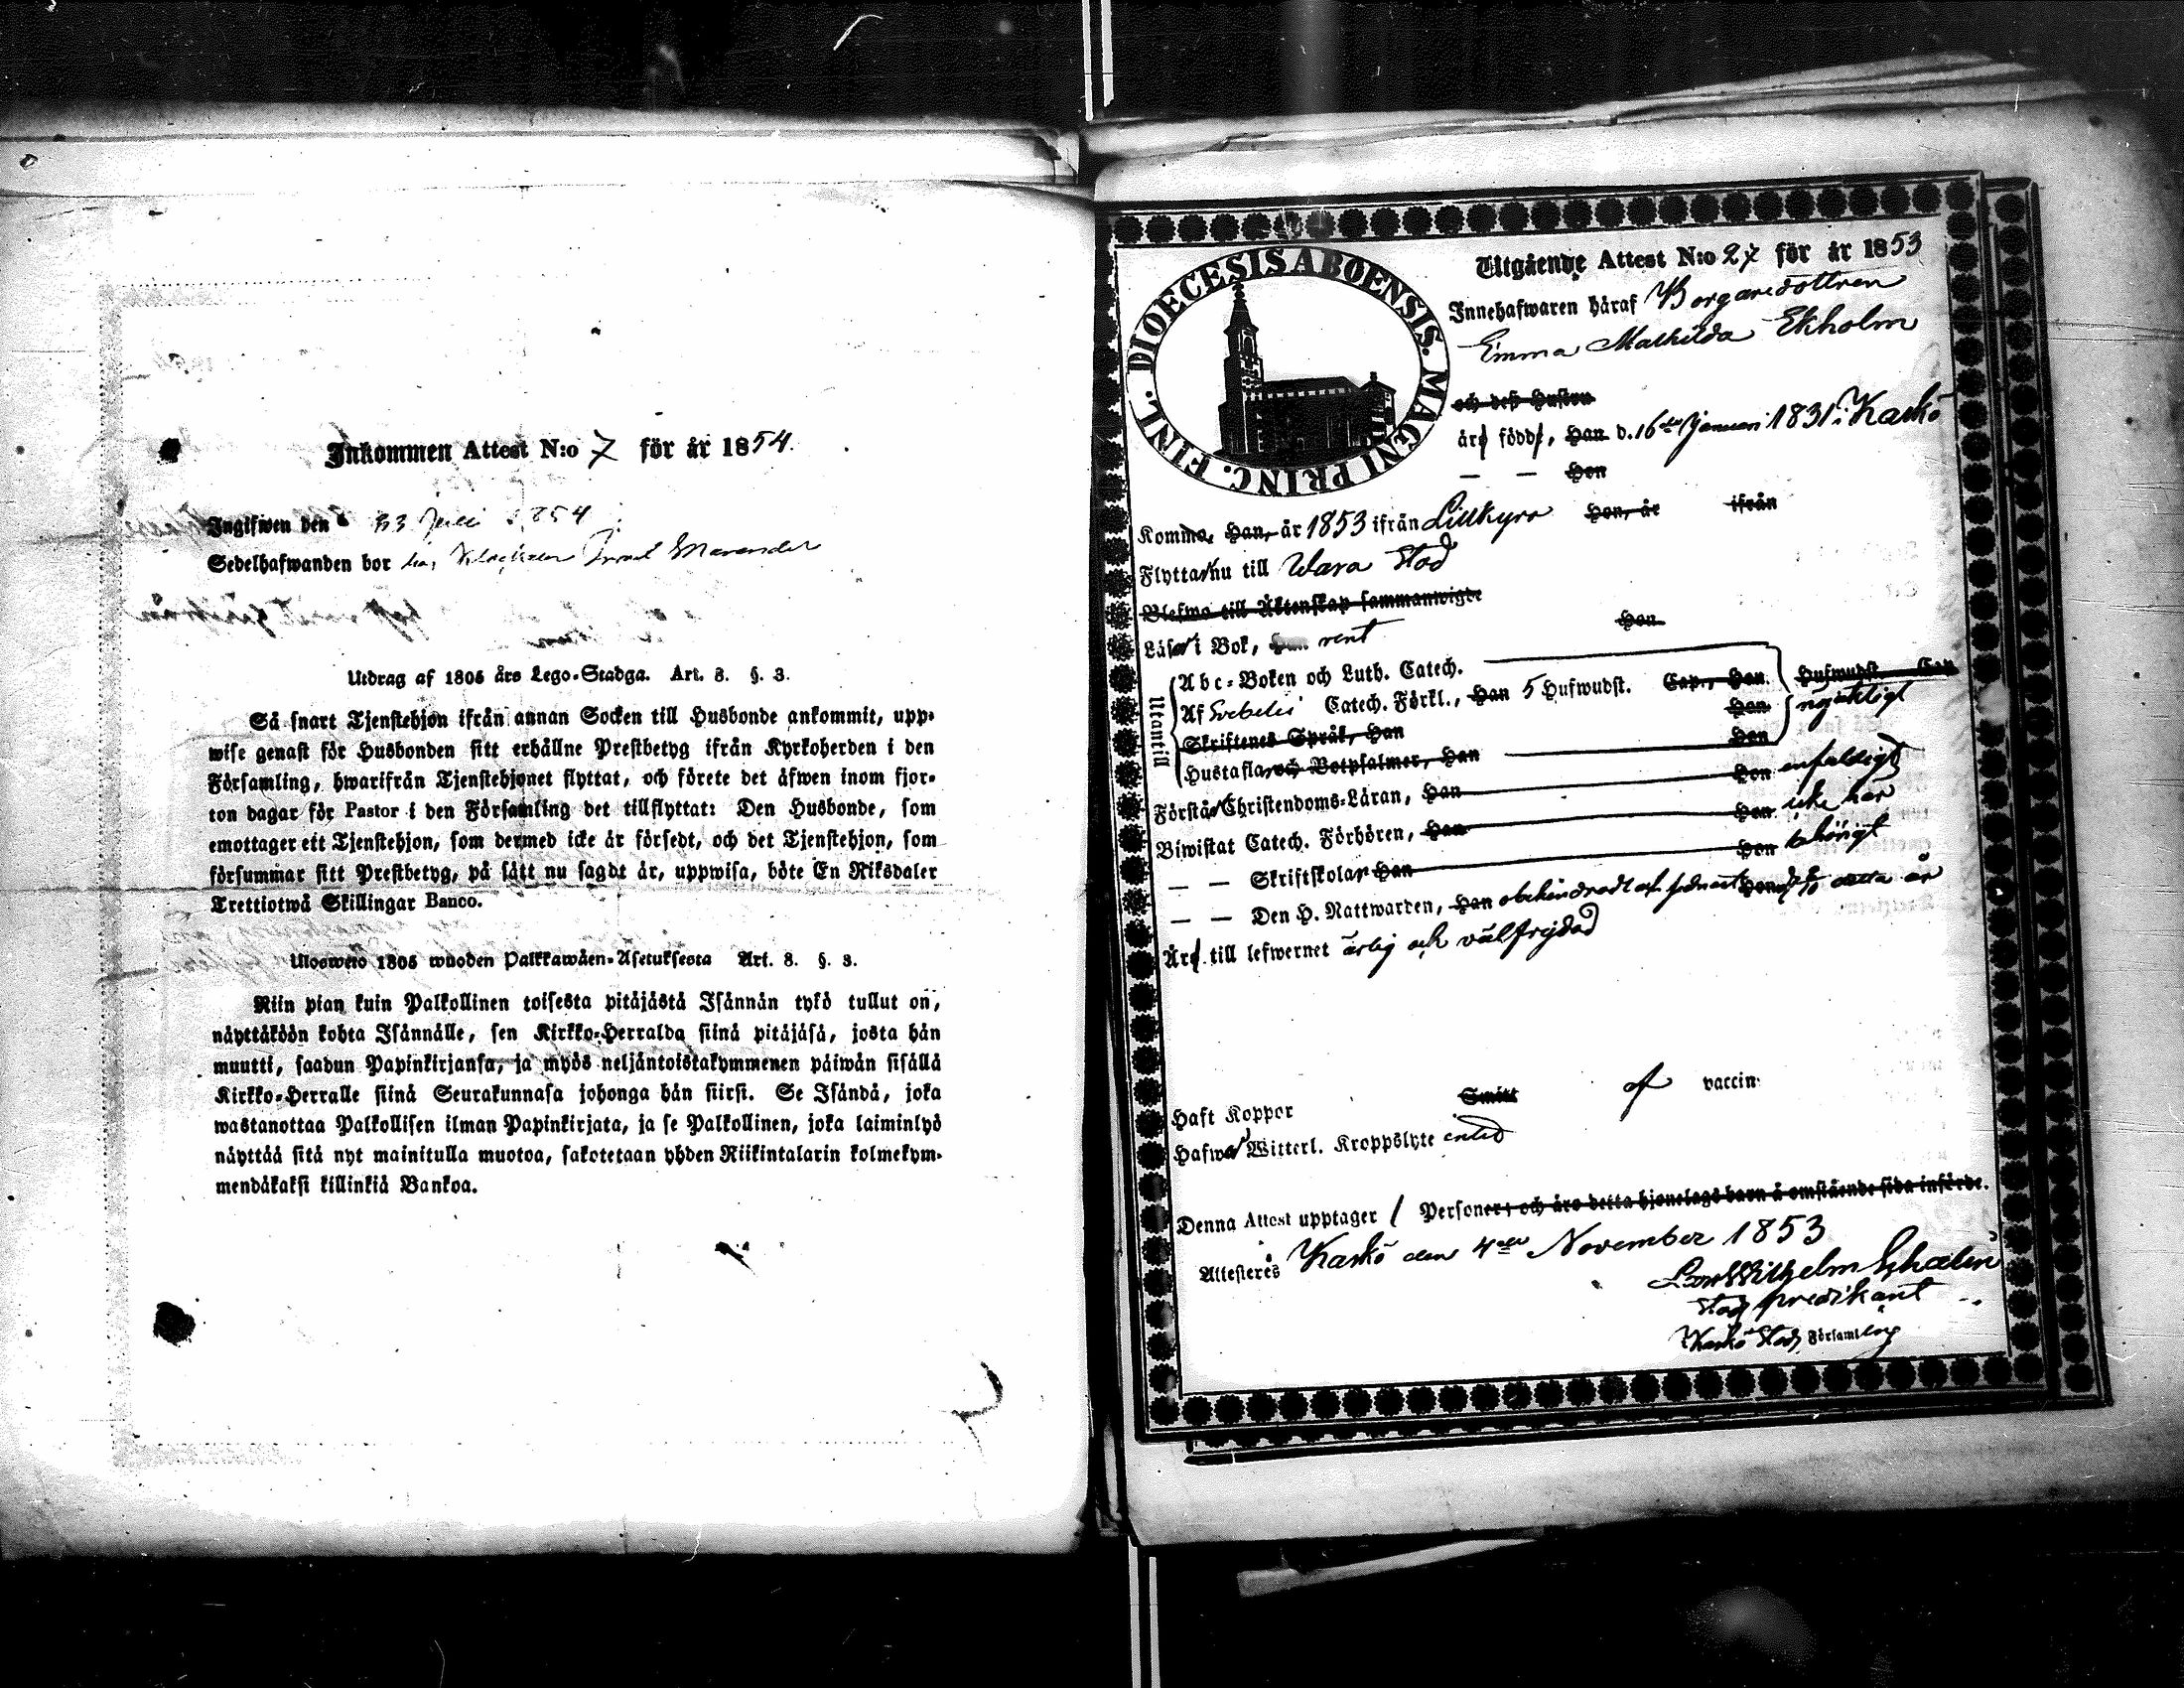 Inkommen Attest N:o 7 för år 1854.
Ingifwen den Juli 1854
Sedelhafwanden bor
Utdrag af 1805 års Lego-Stadga. Art. 8. §. 3.
Så snart Tjenstehjon ifrån annan Socken till Husbonde ankommit, upp-
wise genast för Husbonden sitt erhållne Prestbetyg ifrån Kyrkoherden i den
Församling, hwarifrån Tjenstehjonet flyttat, och förete det äfwen inom fjor-
ton dagar för Pastor i den Församling det tillflyttat: Den Husbonde, som
emottager ett Tjenstehjon, som dermed icke är försedt, och det Tjenstehjon, som
försummar sitt Prestbetyg, på sätt nu sagdt är, uppwisa, böte En Riksdaler
Trettiotwå Skillingar Banco.
Ulosweto 1805 wuoden Palkkawäen-Asetuksesta Art. 8. §. 3.
Niin pian kuin Palkollinen toisesta pitäjästä Isännän tykö tullut on,
näyttäköön kohta Isännälle, sen Kirkko-Herralda siinä pitäjäsä, josta hän
muutti, saadun Papinkirjansa, ja myös neljäntoistakymmenen päiwän sisällä
Kirkko-Herralle siinä Seurakunnasa johonga hän siirsi. Se Isändä, joka
wastanottaa Palkollisen ilman Papinkirjata, ja se Palkollinen, joka laiminlyö
näyttää sitä nyt mainitulla muotoa, sakotetaan yhden Riikintalarin kolmekym-
mendäkaksi killinkiä Bankoa.
DIOECESIS ABOENSIS. MAGNI PRINC. FINL.
Utgående Attest N:o 27 för år 1853
Innehafwaren häraf Borgaredottren
Emma Mathilda Ekholm
och deß Hustru
äro födde, Han d. 16de Januari 1831 i Kaskö
— — Hon
Komne, Han, år 1853 ifrån Lillkyro Hon, år ifrån
Flytta nu till Wasa Stad
Blefwo till Äktenskap sammanwigde
Läsa i Bok, Han rent Hon
Utantill
Abc-Boken och Luth. Catech.
Af Svebelii Catech. Förkl., Han 5 Hufwudst. Cap., Hon Hufwudst. Cap
Skriftenes Språk, Han Hon nöjaktigt
Hustaflan och Botpsalmer, Han Hon
Förstå Christendoms-Läran, Han Hon enfaldigt
Biwistat Catech. Förhören, Han Hon icke här
— — Skriftskolan Han Hon behörigt
— — Den H. Nattwarden, Han obehindradt af Hon detta år
Äro till lefwernet ärlig och välfrejdad
Haft Koppor Smitt af vaccin:
Hafwa Witterl. Kroppslyte intet
Denna Attest upptager 1 Personer; och äro detta hjonelags barn å omstående sida införde.
Attesteres Kaskö den 4de November 1853
Wilhelm
Stads predikant
Kaskö Stads Församling